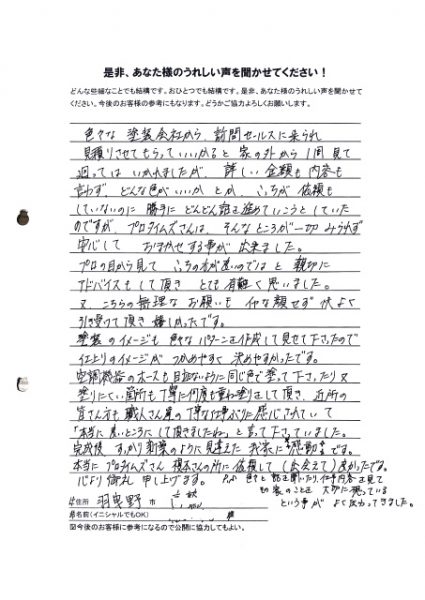 是非、あなた様のうれしい声を聞かせてください!
どんな些細なことでも結構です。おひとつでも結構です。是非、あなた様のうれしい声を聞かせて
ください。今後のお客様の参考にもなります。どうかご協力よろしくお願いします。
色々な 塗装会社から、訪問セールスに来られ
見積りさせてもらっていいかと 家の外から1周見て
廻っては いかれましたが、詳しい金額も内容も
言わず、どんな色がいいか とか、こっちが 依頼も
していないのに 勝手に どんどん話を進めていこうとしていた
のですが、プロタイムズさんは、そんなところが一切みられず
安心して おまかせする事が 出来ました。
プロの目から見て こっちの方が良いのではと 親切に
アドバイスもして頂き とても有難く思いました。
又 こちらの無理なお願いも イヤな顔せず 快よく
引き受けて頂き 嬉しかったです。
塗装のイメージも 色々なパターンを作成して見せて下さったので
仕上りのイメージが つかめやすく 決めやすかったです。
空調機器のホースも目立たないように同じ色で塗って下さったり又
塗りにくい箇所も丁寧に何度も重ね塗りをして頂き、近所の
皆さん方も 職人さん達の丁寧な仕事ぶりに感心されていて
「本当に良いところにして頂きましたね」と言って下さっていました。
完成後 すっかり新築のように見違えた我家に"感動"です。
本当にプロタイムズさん 根本さんの所に依頼して(出会えて)良かったです。
心より御礼 申し上げます。
色々と話を聞いたり、仕事内容を見て
家のことを 大切に思っている
という事が よく伝わってきました。
ご住所 羽曳野 市
お名前(イニシャルでもOK) 様
今後のお客様に参考になるので公開に協力してもよい。